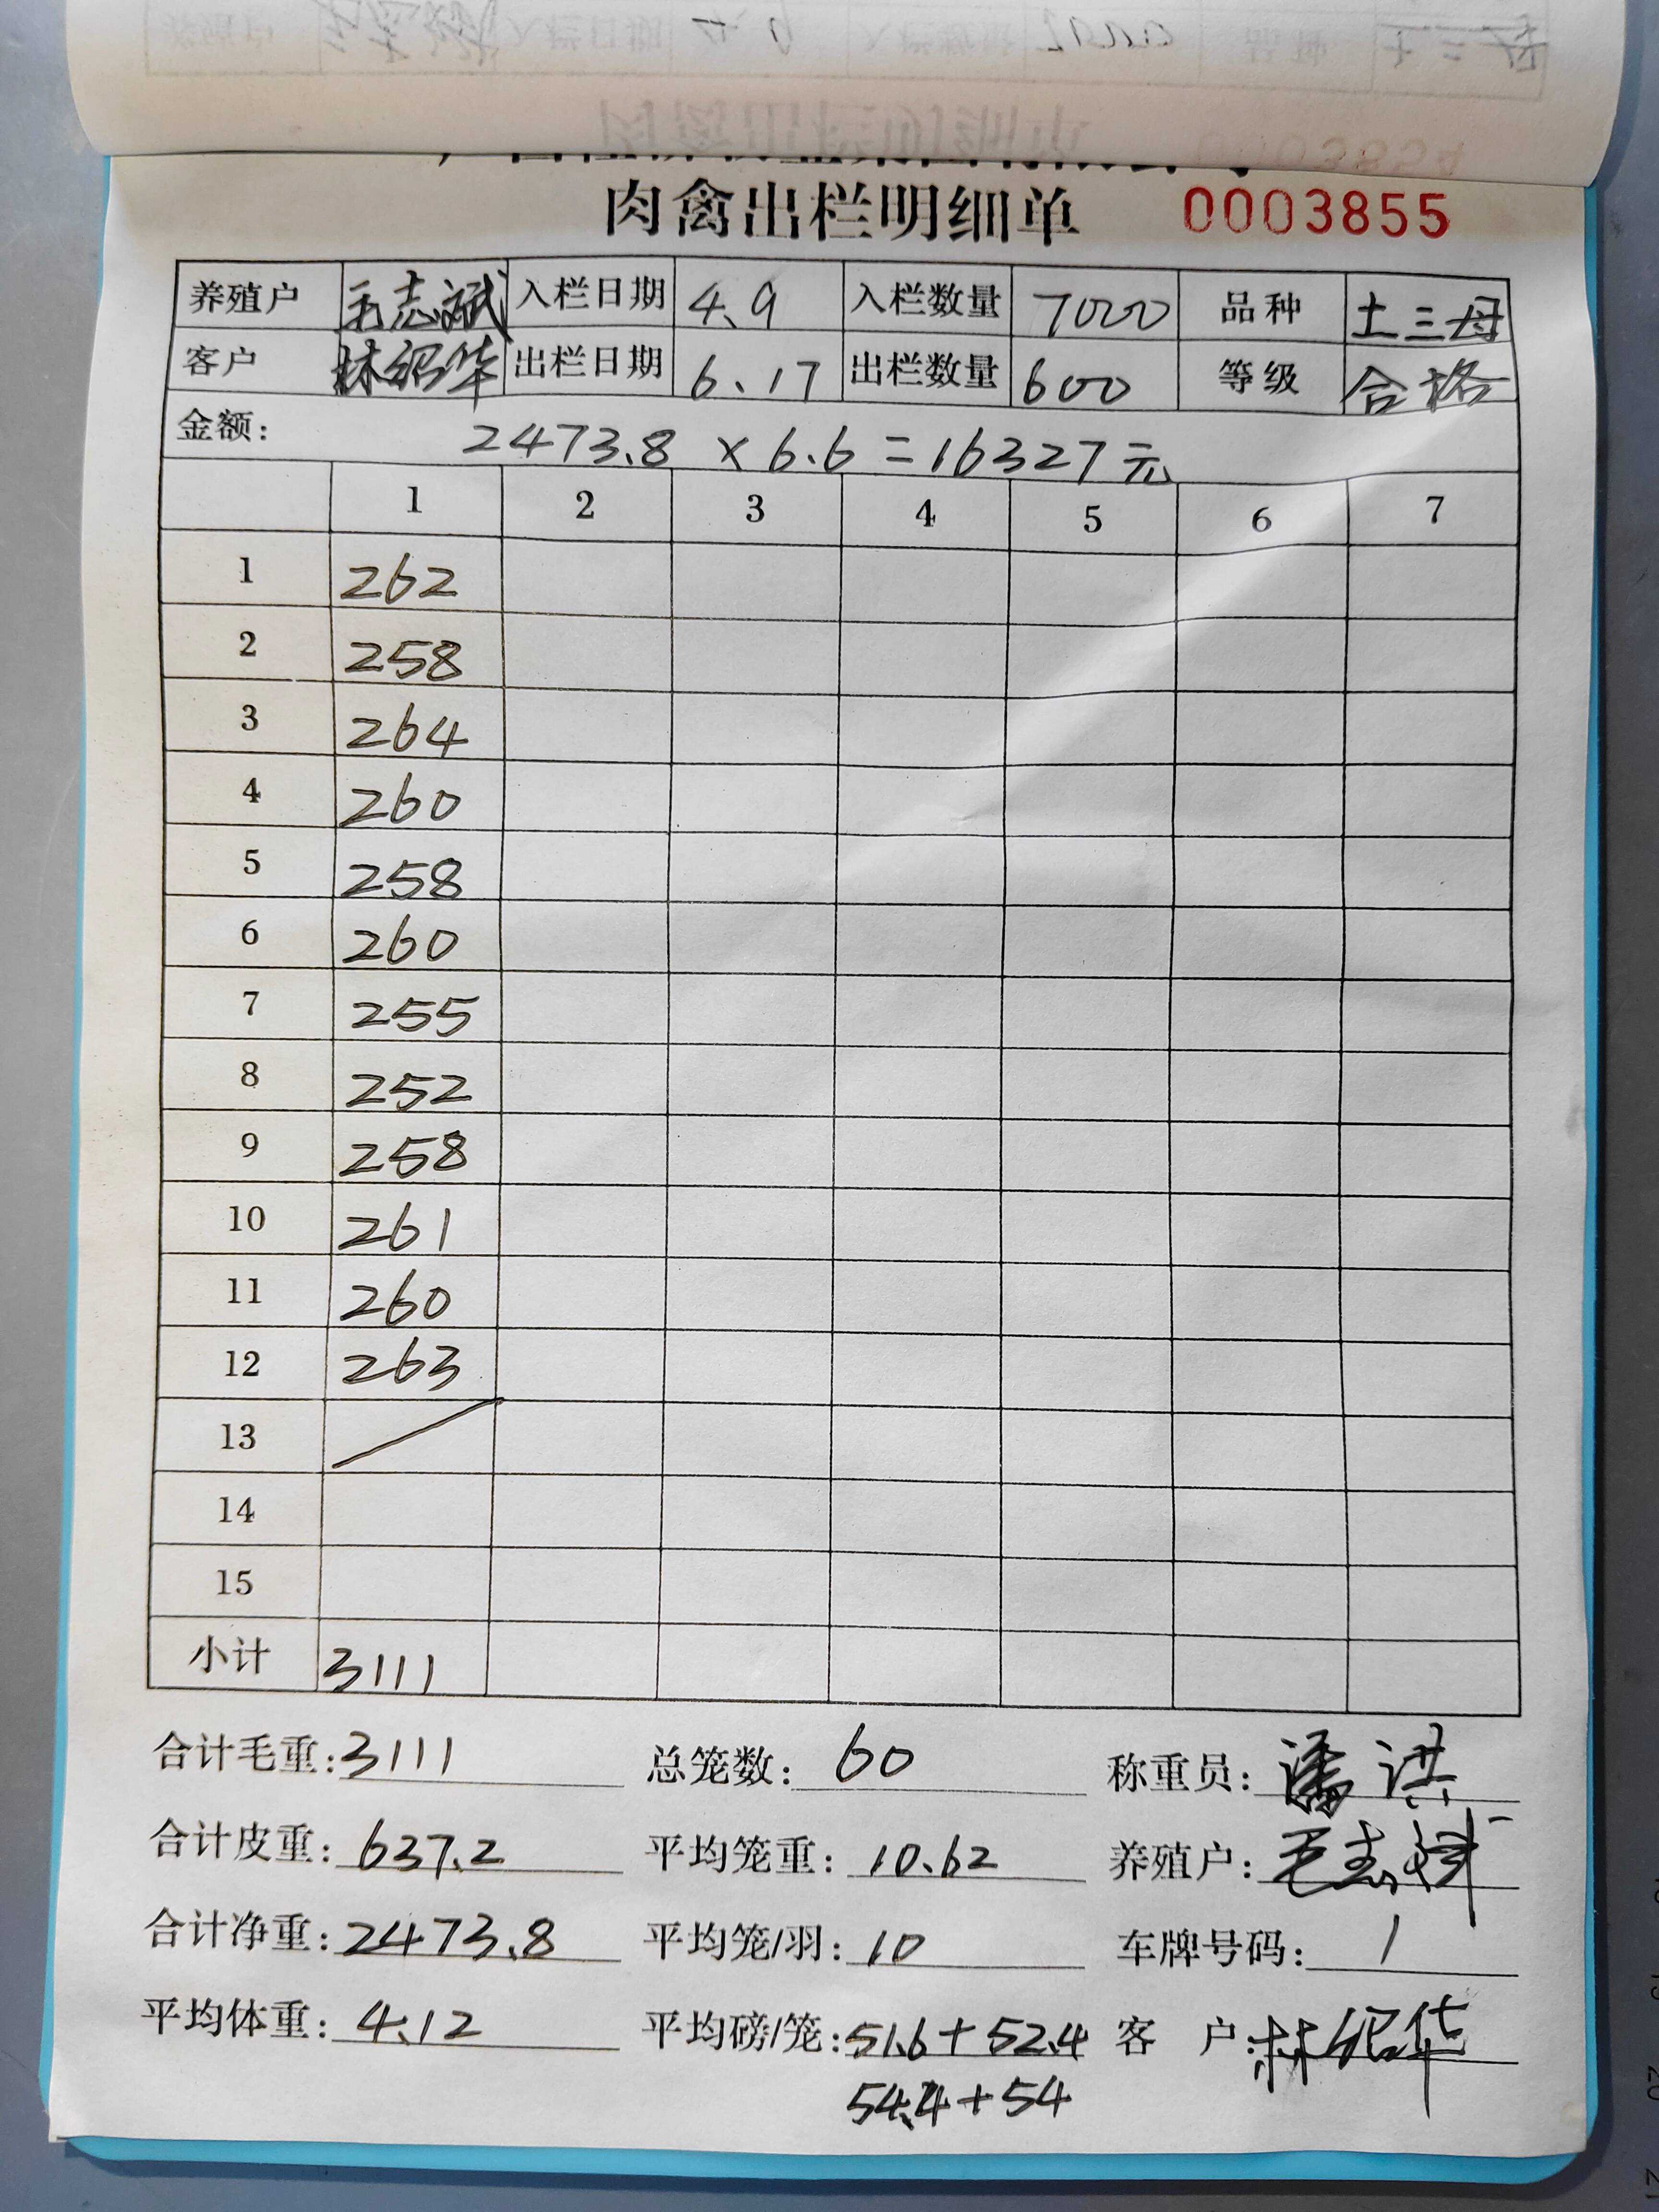 肉禽出栏明细单 0003855
养殖户 毛志斌 入栏日期 4.9 入栏数量 7000 品种 土三母
客户 林绍华 出栏日期 6.17 出栏数量 600 等级 合格
金额: 2473.8 × 6.6 = 16327元
1 2 3 4 5 6 7
1 262
2 258
3 264
4 260
5 258
6 260
7 255
8 252
9 258
10 261
11 260
12 263
13
14
15
小计 3111
合计毛重: 3111 总笼数: 60 称重员: 潘洪
合计皮重: 637.2 平均笼重: 10.62 养殖户: 毛志斌
合计净重: 2473.8 平均笼/羽: 10 车牌号码: 1
平均体重: 4.12 平均磅/笼: 51.6+52.4 客 户: 林绍华
54.4+54